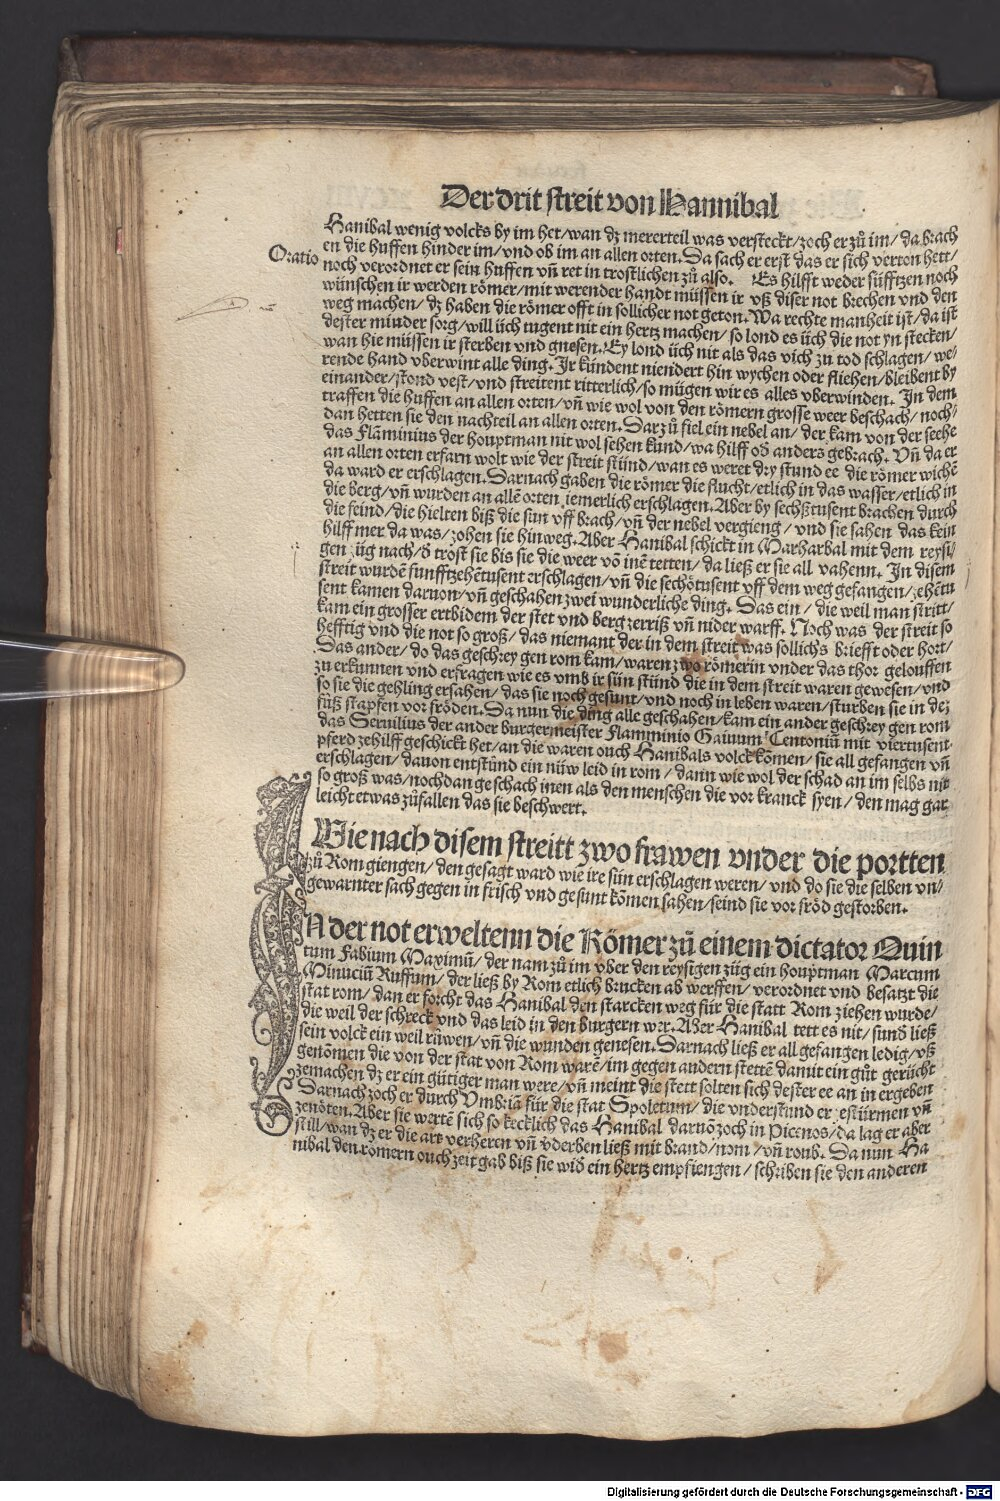 Der drit streit von Hannibal
Hanibal wenig volcks by im het/wan dz mererteil was versteckt/zoch er zů im/da brach
en die huffen hinder im/vnd ob im an allen orten. Da sach er erst das er sich verton hett/
Oratio
noch verordnet er sein huffen vñ ret in trostlichen zů also. Es hilfft weder süfftzen noch
wünschen ir werden römer/mit werender handt müssen ir vß diser not brechen vnd den
weg machen/ dz haben die römer offt in sollicher not geton. Wa rechte manheit ist/da ist
dester minder sorg/will üch tugent nit ein hertz machen/ so lond es üch die not yn stecken/
wan hie müssen ir sterben vnd gnesen. Ey lond üch nit als das vich zu tod schlagen/ we⸗
rende hand vberwint alle ding. Ir kündent niendert hin wychen oder fliehen/bleibent by
einander/stond vest/vnd streitent ritterlich/so mügen wir es alles vberwinden. In dem
traffen die huffen an allen orten/vñ wie wol von den römern grosse weer beschach/ noch⸗
dan hetten sie den nachteil an allen orten. Dar zů fiel ein nebel an/ der kam von der seehe
das Flāminius der houptman nit wol sehen kund/wa hilff od̄ anders gebrach. Vñ da er
an allen orten erfarn wolt wie der streit stünd/wan es weret dry stund ee die römer wichē
da ward er erschlagen. Darnach gaben die römer die flucht/etlich in das wasser/etlich in
die berg/vñ wurden an allē orten iemerlich erschlagen. Aber by sechßtusent brachen durch
die feind/die hielten biß die sun vff brach/vñ der nebel vergieng/vnd sie sahen das kein
hilff mer da was/zohen sie hinweg. Aber Hanibal schickt in Marharbal mit dem reysi⸗
gen züg nach/d̄ trost sie bis sie die weer vō inē tetten/da ließ er sie all vahenn. In disem
streit wurdē funfftzehētusent erschlagen/vñ die sechßtusent vff dem weg gefangen/zehētu
sent kamen daruon/vñ geschahen zwei wunderliche ding. Das ein/die weil man stritt/
kam ein grosser ertbidem der stet vnd berg zerriß vñ nider warff. Noch was der streit so
hefftig vnd die not so groß/das niemant der in dem streit was sollichs briefft oder hort/
Das ander/do das geschrey gen rom kam/waren zwo römerin vnder das thor gelouffen
zu erkunnen vnd erfragen wie es vmb ir sün stünd die in dem streit waren gewesen/vnd
so sie die gehling ersahen/das sie noch gesunt/vnd noch in leben waren/sturben sie in dez
fůß stapfen vor fröden. Da nun die ding alle geschahen/kam ein ander geschrey gen rom
das Seruilius der ander burgermeister Flamminio Gaiuum Centoniū mit viertusent
pferd zehilff geschickt het/an die waren ouch Hanibals volck kōmen/sie all gefangen vñ
erschlagen/dauon entstünd ein nüw leid in rom/dann wie wol der schad an im selbs nit
so groß was/nochdan geschach inen als den menschen die vor kranck syen/den mag gar
leicht etwas zůfallen das sie beschwert.
Wie nach disem streitt zwo frawen vnder die portten
zů Rom giengen/den gesagt ward wie ire sün erschlagen weren/vnd do sie die selben vn⸗
gewarnter sach gegen in frisch vnd gesunt kōmen sahen/seind sie vor fröd gestorben.
IN der not erweltenn die Römer zů einem dictator Quin
tum Fabium Maximū/der nam zů im vber den reysigen züg ein houptman Marcum
Minuciū Ruffum/der ließ by Rom etlich brucken ab werffen/verordnet vnd besatzt die
stat rom/dan er forcht das Hanibal den starcken weg für die statt Rom ziehen wurde/
die weil der schreck vnd das leid in den burgern wer. Aber Hanibal tett es nit/sund̄ ließ
sein volck ein weil růwen/vñ die wunden genesen. Darnach ließ er all gefangen ledig/vß
genōmen die von der stat von Rom warē/im gegen andern stettē damit ein gůt gerücht
zemachen dz er ein gütiger man were/vñ meint die stett solten sich dester ee an in ergeben
Darnach zoch er durch Vmbriā für die stat Spoletum/die vnderstund er estürmen vñ
zenöten. Aber sie wertē sich so kecklich das Hanibal darnō zoch in Picenos/da lag er aber
still/wan dz er die art verheren vñ v̄derben ließ mit brand/nom/vñ roub. Da nun Ha
nibal den römern ouch zeit gab biß sie wid̄ ein hertz empfiengen/schriben sie den anderen
Digitalisierung gefördert durch die Deutsche Forschungsgemeinschaft - DFG